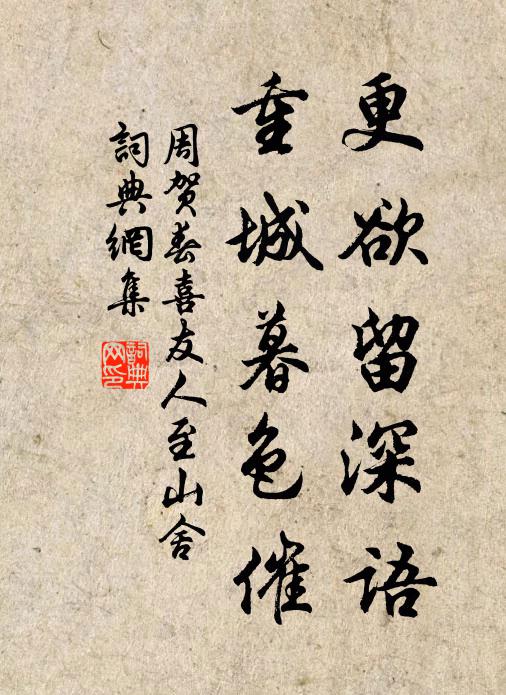 更欲留深語
重城暮色催
周贺春喜友人至山舍
詞典網集
詞典网印